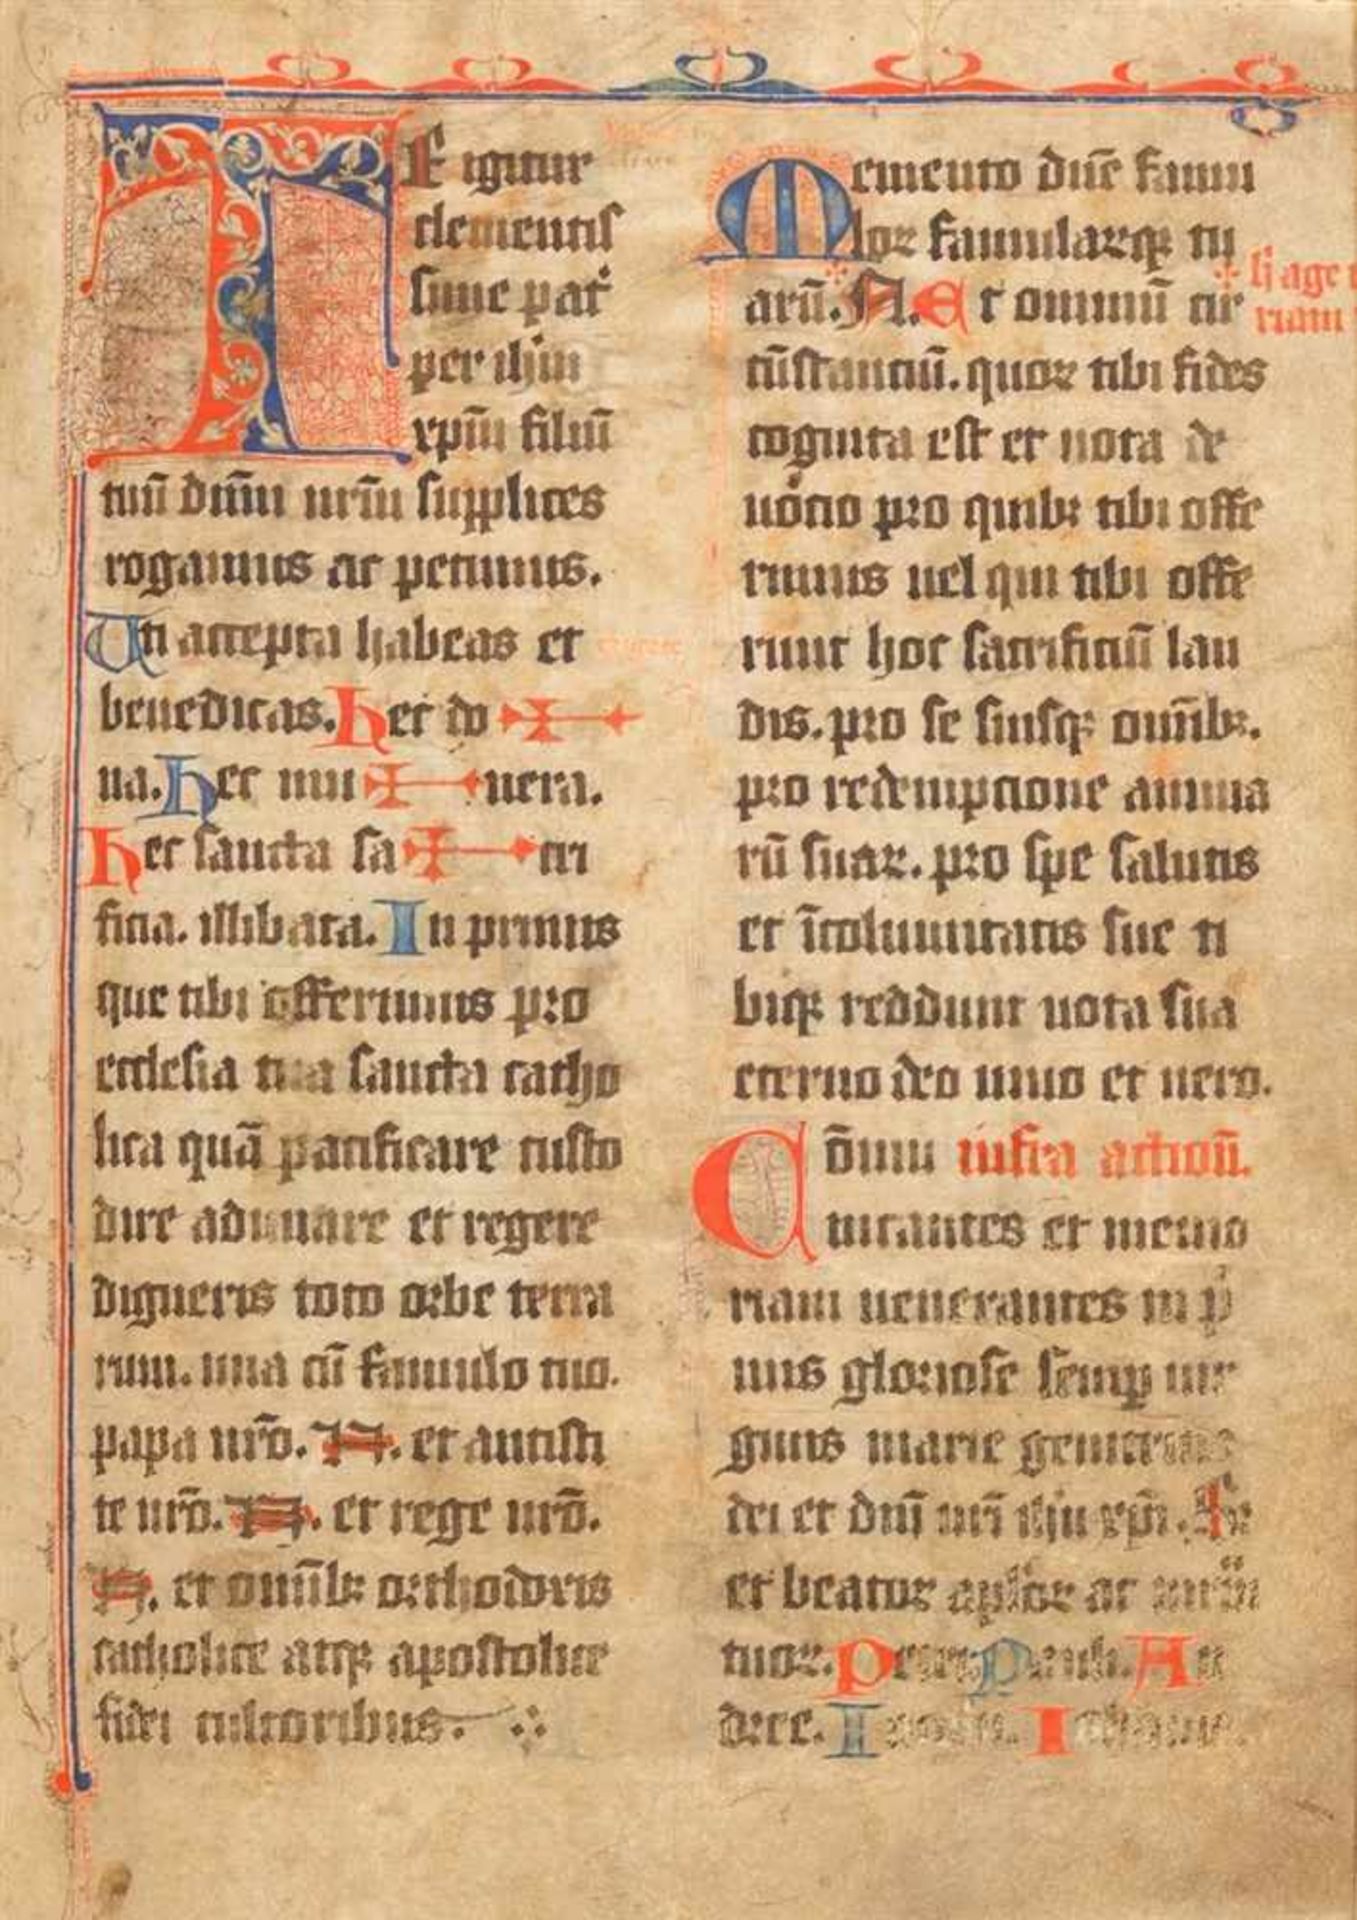 TE igitur
clementis
sime pat̄
per ihm
xp̄m filiū
tuū dn̄m nr̄m supplices
rogamus ac petimus.
Uti accepta habeas et
benedicas. hec do ✠
na. hec mu ✠ nera.
hec sancta sa ✠ cri
ficia. illibata. In primis
que tibi offerimus pro
ecclesia tua sancta catho
lica quā pacificare custo
dire adunare et regere
digneris toto orbe terra
rum. una cū famulo tuo.
papa nr̄o. N. et antisti
te nr̄o. N. et rege nr̄o.
N. et om̄ibꝫ orthodoxis
catholice atqꝫ apostolice
fidei cultoribus.
Memento dn̄e famu
loꝝ famularūqꝫ tu
arū. N. Et omniū cir
cūstanciū. quoꝝ tibi fides
cognita est et nota de
uocio pro quibꝫ tibi offe
rimus uel qui tibi offe
runt hoc sacrificiū lau
dis. pro se suisqꝫ om̄ibꝫ.
pro redempcione anima
rū suaꝝ. pro spe salutis
et īcolumitatis sue ti
biqꝫ reddunt uota sua
eterno deo uiuo et uero.
Cōmu infra actionē.
nicantes et memo
riam uenerantes in p̄
mis gloriose semꝑ uir
ginis marie genitricis
dei et dn̄i nr̄i ihu xp̄i. Sꝫ
et beatoꝝ apl̄oꝝ ac mr̄m
tuoꝝ. Petri. Pauli. An
dree. Iacobi. Iohannis.